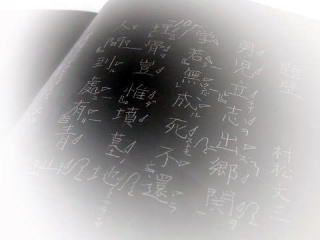 題壁 村松文三
男児立志出郷関
学若無成死不還
埋骨豈惟墳墓地
人間到處有青山